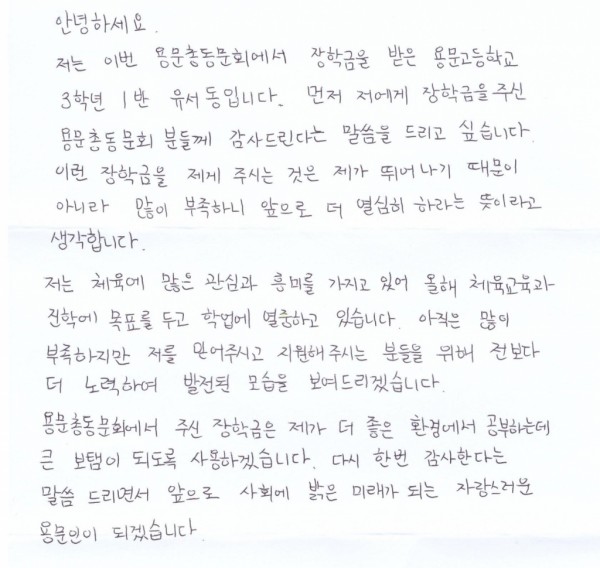 안녕하세요.
저는 이번 용문총동문회에서 장학금을 받은 용문고등학교
3학년 1반 유서동입니다. 먼저 저에게 장학금을 주신
용문총동문회 분들께 감사드린다는 말씀을 드리고 싶습니다.
이런 장학금을 제게 주시는 것은 제가 뛰어나기 때문이
아니라 많이 부족하니 앞으로 더 열심히 하라는 뜻이라고
생각합니다.
저는 체육에 많은 관심과 흥미를 가지고 있어 올해 체육교육과
진학에 목표를 두고 학업에 열중하고 있습니다. 아직은 많이
부족하지만 저를 믿어주시고 지원해주시는 분들을 위해 전보다
더 노력하여 발전된 모습을 보여드리겠습니다.
용문총동문회에서 주신 장학금은 제가 더 좋은 환경에서 공부하는데
큰 보탬이 되도록 사용하겠습니다. 다시 한번 감사한다는
말씀 드리면서 앞으로 사회에 밝은 미래가 되는 자랑스러운
용문인이 되겠습니다.